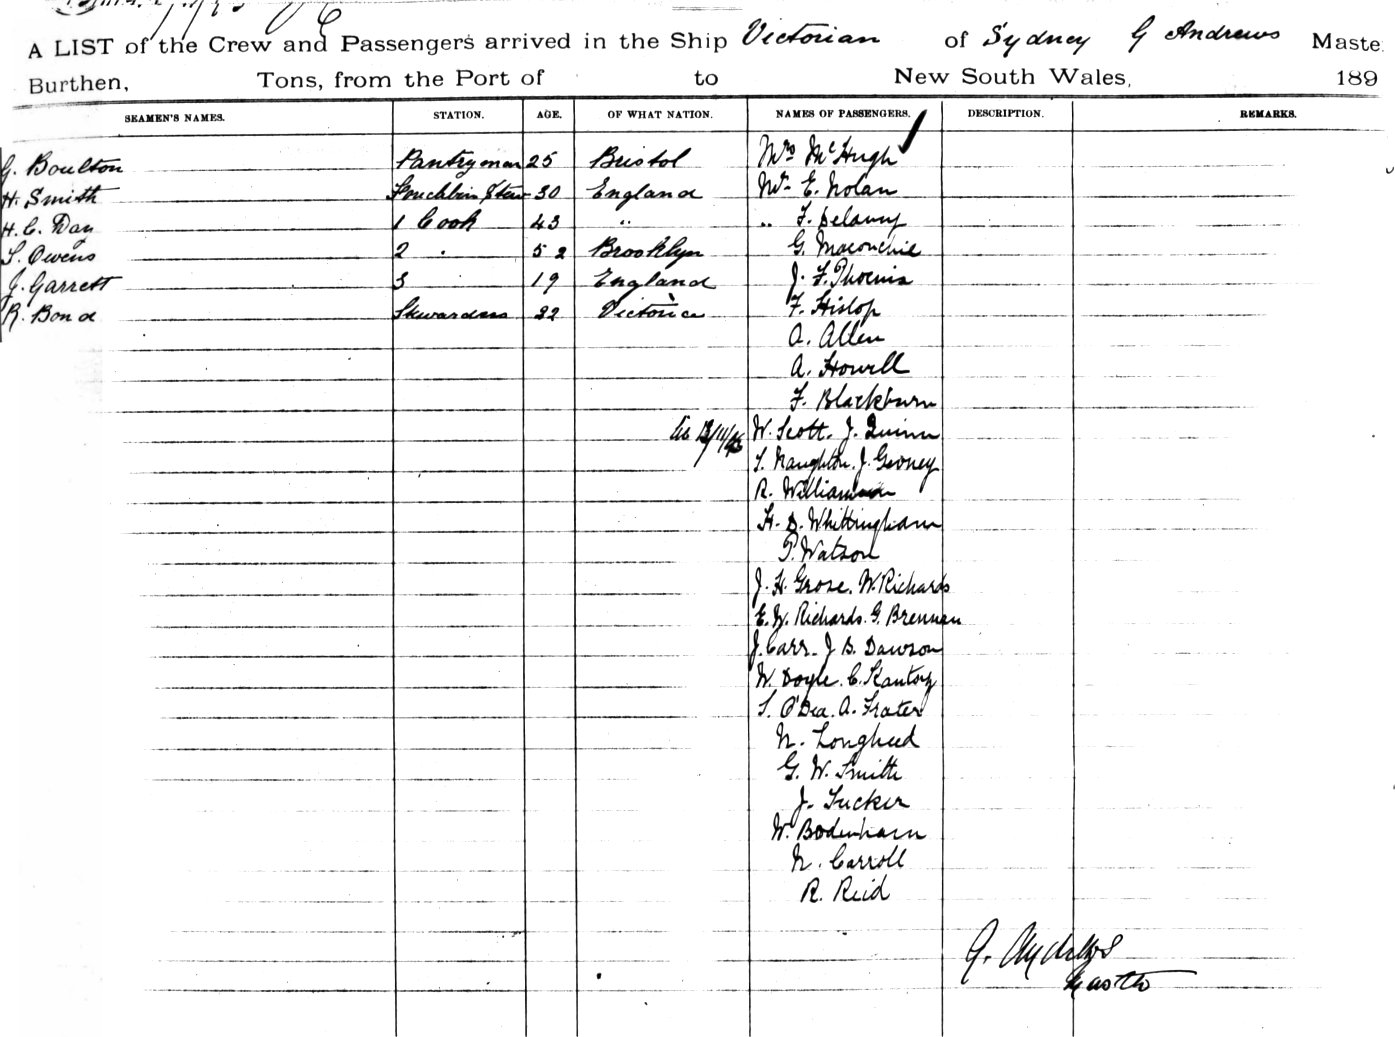 A LIST of the Crew and Passengers arrived in the Ship Victorian of Sydney G Andrews Maste
Burthen, Tons, from the Port of to New South Wales, 189
SEAMEN'S NAMES. STATION. AGE. OF WHAT NATION. NAMES OF PASSENGERS. DESCRIPTION. REMARKS.
G. Boulton Pantryman 25 Bristol Mrs McHugh
H. Smith Stew 30 England Mr E. Nolan
H. C. Day 1 Cook 43 " " F. Delany
S. Owens 2 " 52 Brooklyn G. Maconchie
J. Garrett 3 19 England J. F. Phoenix
R. Bond Stewardess 32 Victoria F. Hislop
A. Allen
A. Howell
F. Blackburn
W. Scott. J. Quinn
T. Naughton. J.
R. Williamson
H. D. Whittingham
P. Watson
J. H. Grose. W. Richards
E. W. Richards. G. Brennan
J. Carr. J. D. Dawson
W. Doyle. C.
T. O'Dea. A. Frater
N. Longheed
G. W. Smith
J. Tucker
W. Bodenham
N. Carroll
R. Reid
G. Andrews
Master